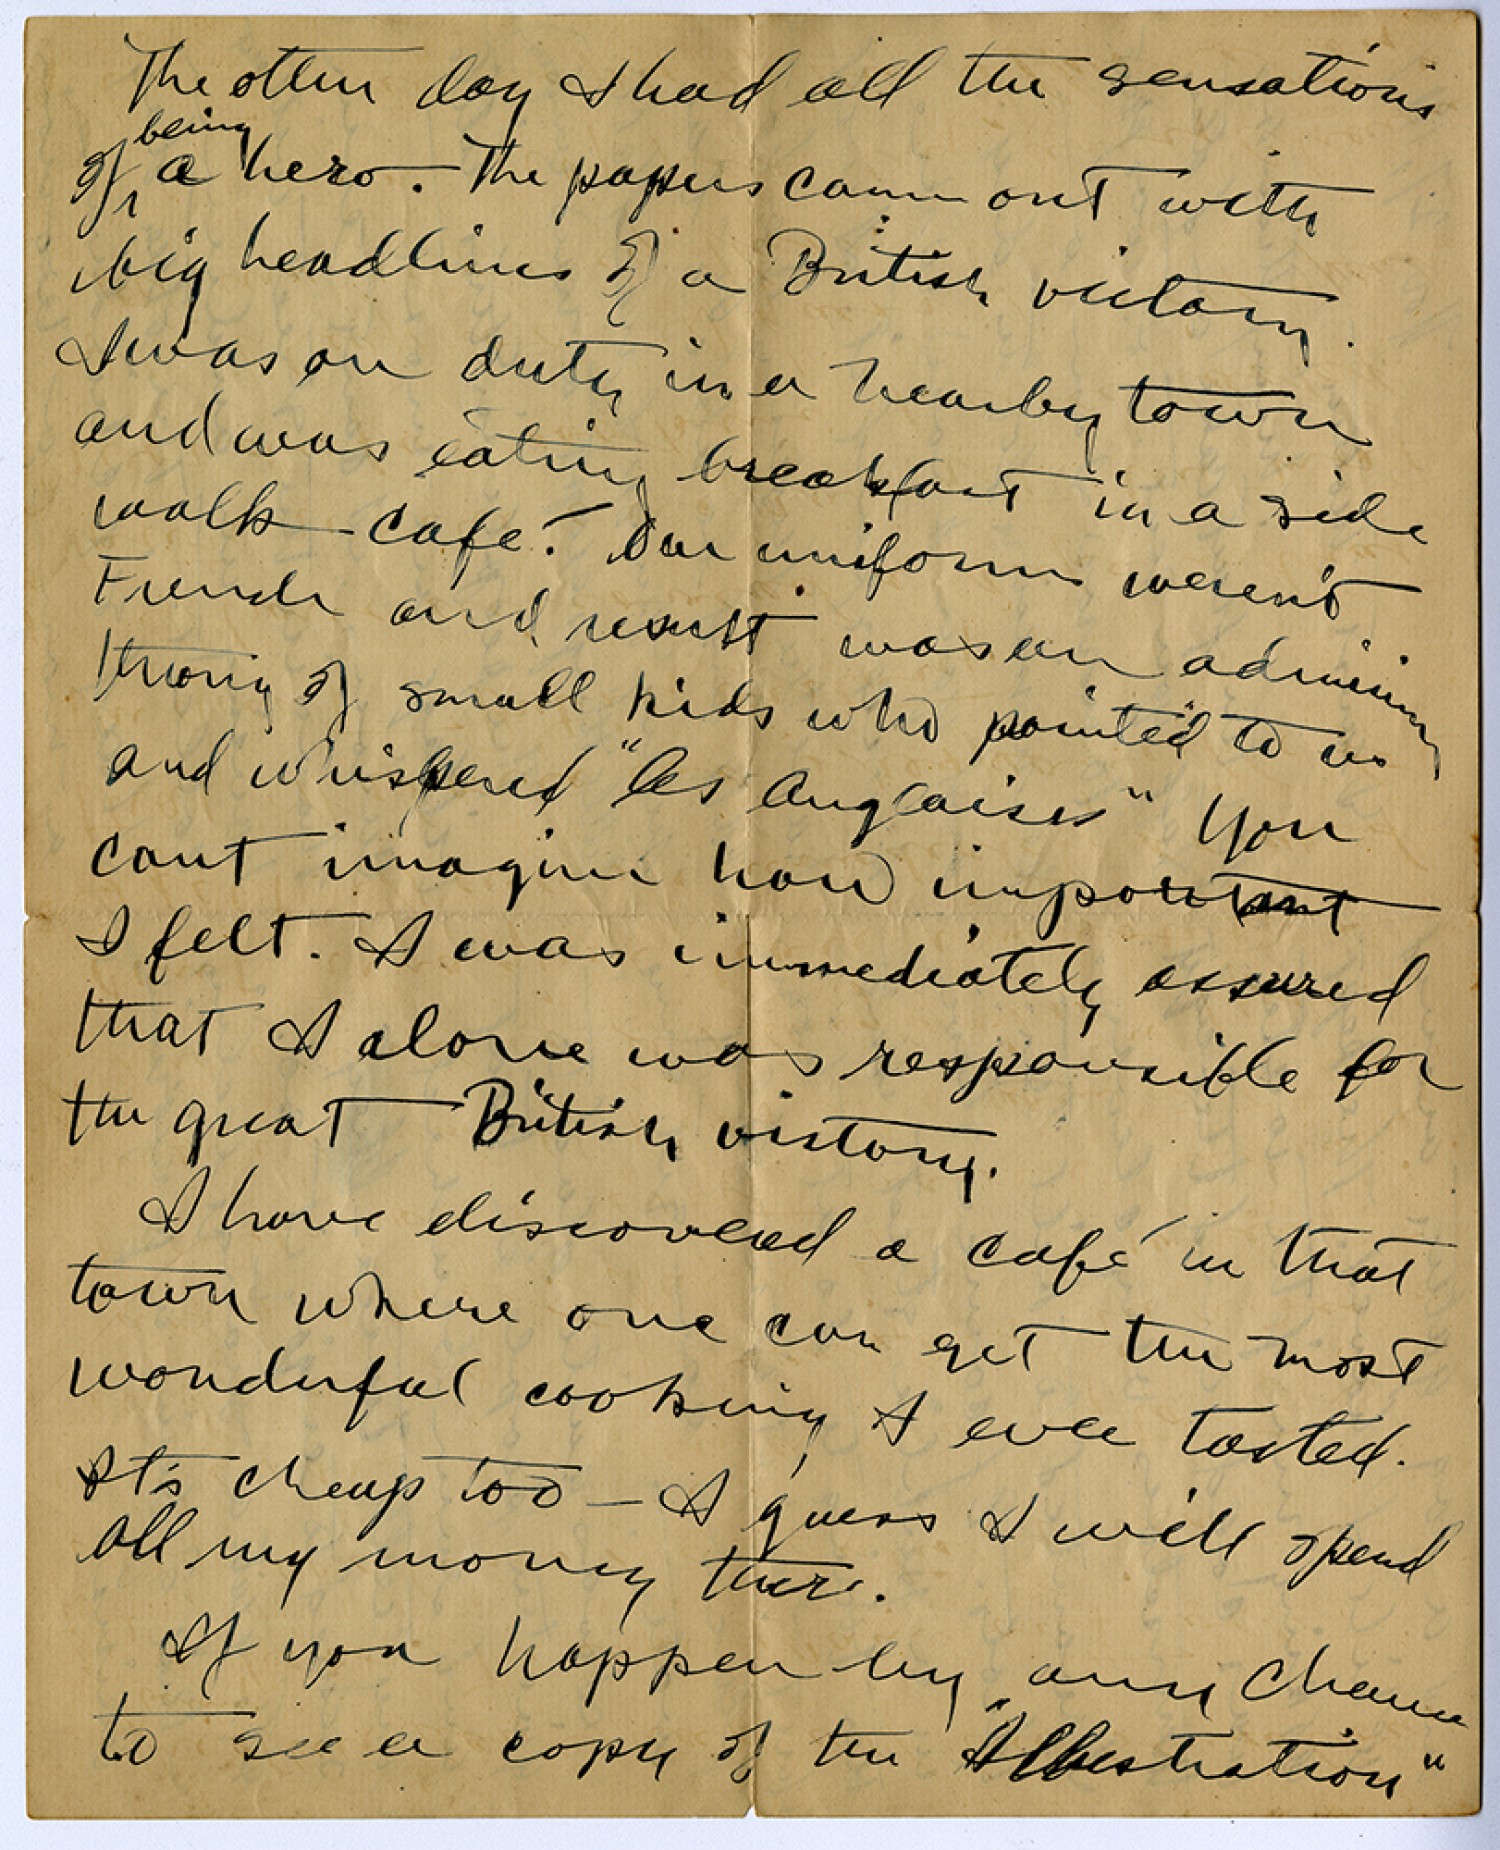 The other day I had all the sensations
of being a hero. The papers came out with
big headlines of a British victory.
I was on duty in a nearby town
and was eating breakfast in a side
walk café. Our uniforms weren't
French and result was an admiring
throng of small kids who pointed to us
and whispered "les Anglaises" You
cant imagine how important
I felt. I was immediately assured
that I alone was responsible for
the great British victory.
I have discovered a café in that
town where one can get the most
wonderful cooking I ever tasted.
It's cheap too — I guess I will spend
all my money there.
If you happen by any chance
to see a copy of the "Illustration"